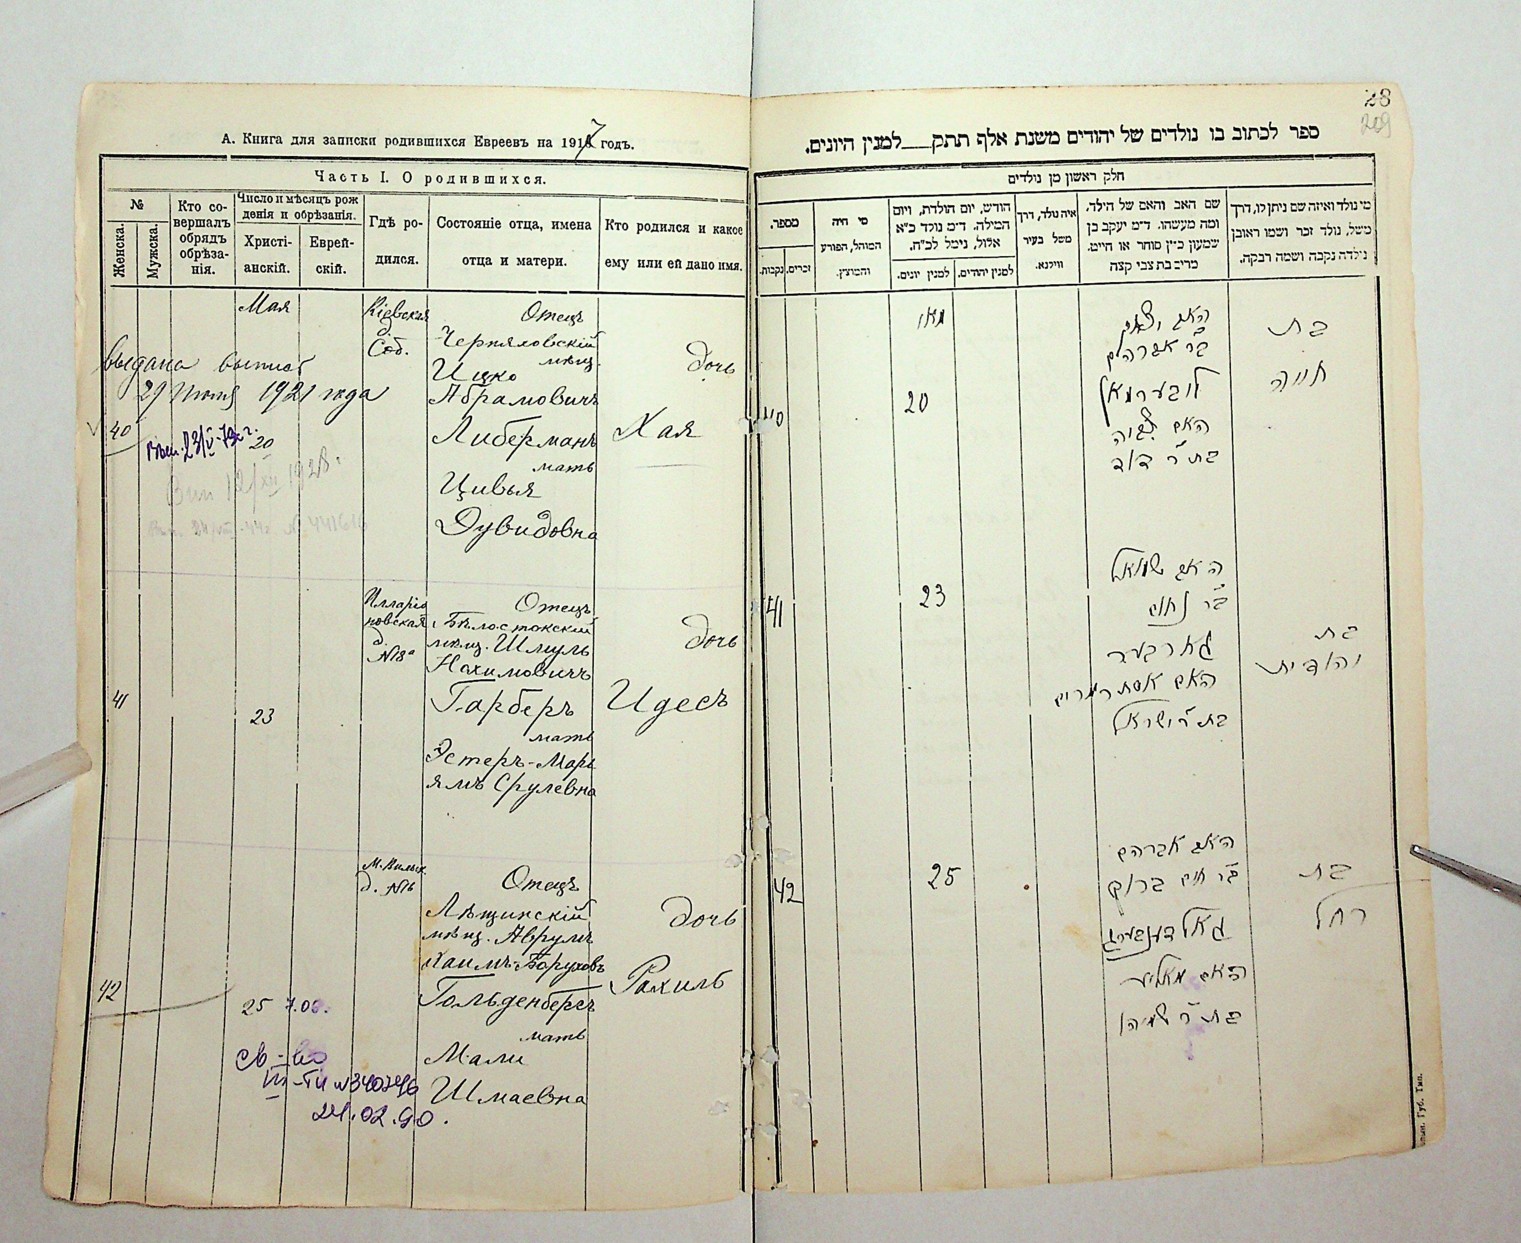 А. Книга для записки родившихся Евреевъ на 1917 годъ.
Часть I. О родившихся.
№
Женска.
Мужска.
Кто со-
вершалъ
обрядъ
обрѣза-
нія.
Число и мѣсяцъ рож
денія и обрѣзанія.
Христі-
анскій.
Еврей-
скій.
Гдѣ ро-
дился.
Состояніе отца, имена
отца и матери.
Кто родился и какое
ему или ей дано имя.
Мая
Кіевская
д.
Соб.
Отецъ
Черняховскій
мѣщ.
Ицко
Абрамовичъ
Либерманъ
мать
Цивья
Дувидовна
дочь
Хая
выдана выпись
29 Іюня 1921 года
40
20
Вып 12/XII 1928 г.
41
23
Илларіо
новская
д.
№8а
Отецъ
Бѣлостокскій
мѣщ. Шмуль
Нахимовичъ
Гарберъ
мать
Эстеръ-Марь
ямъ Срулевна
дочь
Идесъ
42
25
М. Вильск.
д. №6
Отецъ
Лѣщинскій
мѣщ. Аврумъ
Хаимъ-Боруховъ
Гольденбергъ
мать
Мали
Шмаевна
дочь
Рахиль
св-во
III-ТИ №340746
24.02.90.
28
209
ספר לכתוב בו נולדים של יהודים משנת אלף תתק למנין היונים.
חלק ראשון מן נולדים
מספר.
נקבות.
זכרים.
מי היה
המוהל, הפורע
והמוצץ.
חודש, יום הולדת, ויום
המילה. ד״מ נולד כ״א
אלול, נימל לכ״ח.
למנין יונים.
למנין יהודים.
איה נולד, דרך
משל בעיר
ווילנא.
שם האב והאם של הילד.
ומה מעשהו. ד״מ יעקב בן
שמעון כ״ץ סוחר או חייט.
מרים בת צבי קצה
מי נולד ואיזה שם ניתן לו, דרך
משל, נולד זכר ושמו ראובן
נולדה נקבה ושמה רבקה.
40
מאי
20
האב יצחק
בר אברהם
ליבערמאן
האם צביה
בת ר׳ דוד
בת
חויה
41
23
האב שמואל
בר נחום
גארבער
האם אסתר מרים
בת ר׳ ישראל
בת
יהודית
42
25
האב אברהם
בר חיים ברוך
גאלדענבערג
האם מאליע
בת ר׳ שמעיהו
בת
רחל